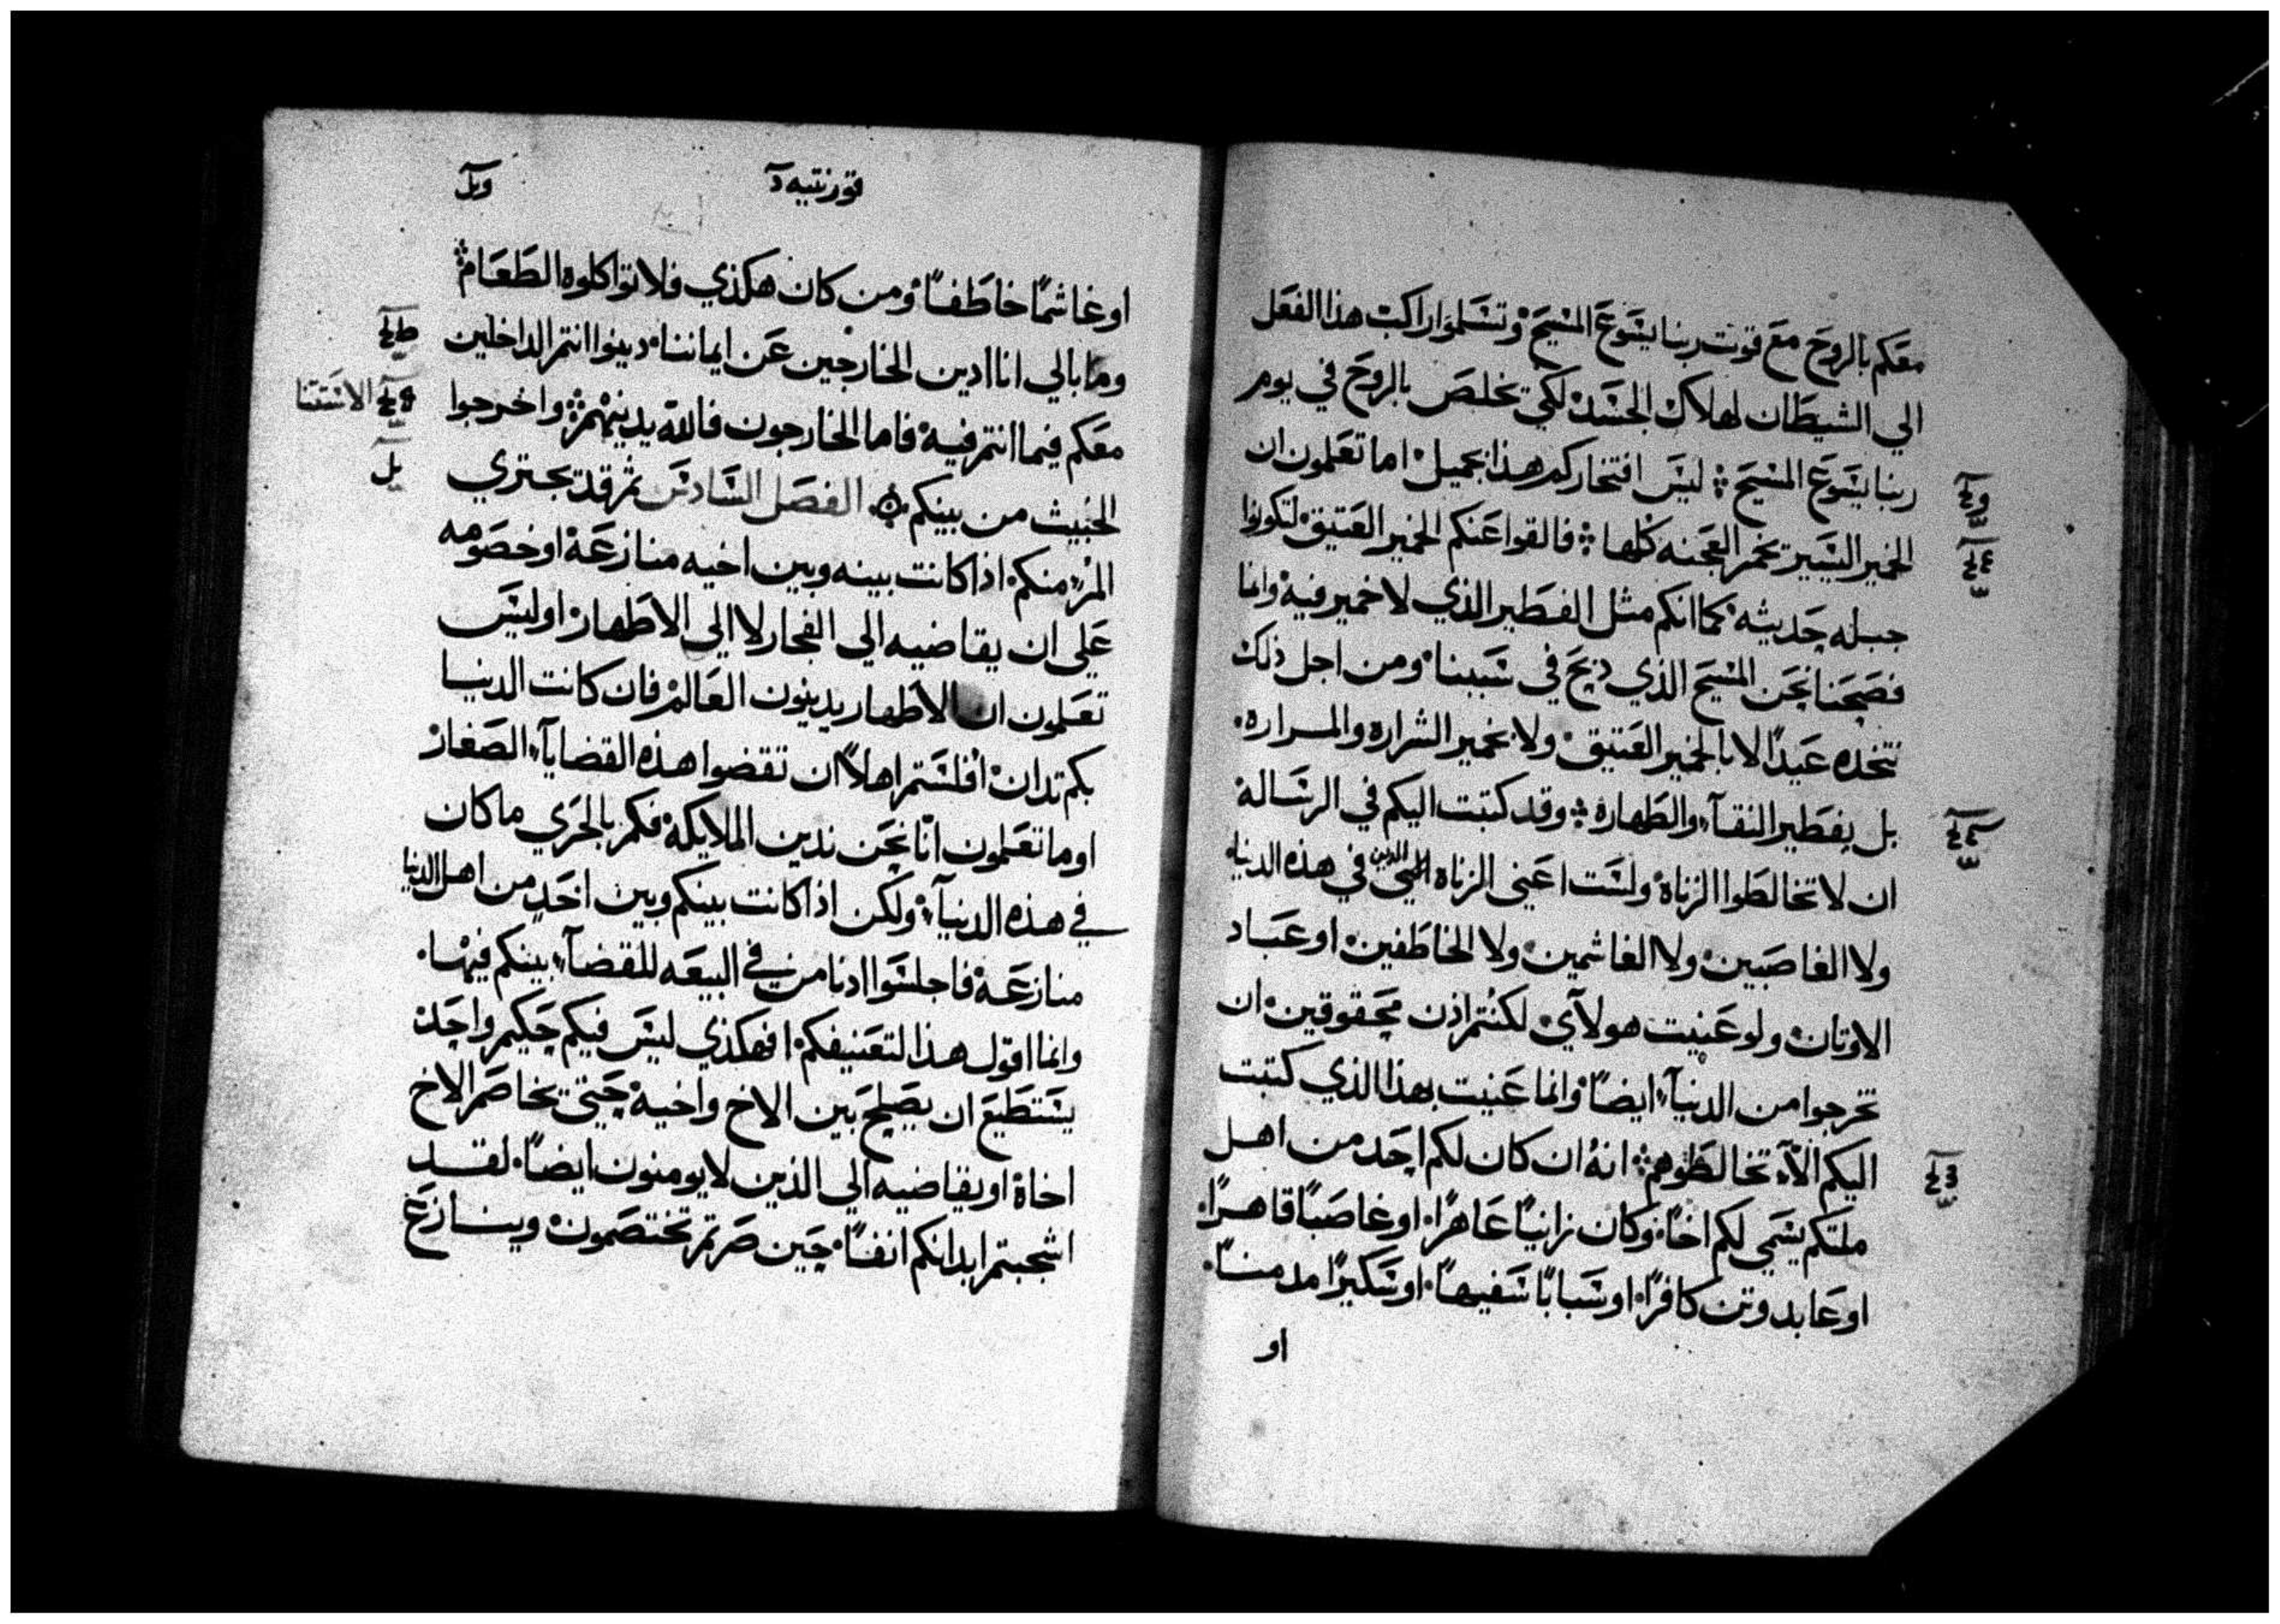 معكم بالروح مع قوت ربنا يسوع المسيح وتسلموا راكب هذا الفعل
الي الشيطان لهلاك الجسد لكي تخلص بالروح في يوم
ربنا يسوع المسيح ليس افتخاركم هذا بجميل اما تعلمون ان
الخمير اليسير تخمر العجنه كلها فالقوا عنكم الخمير العتيق لتكونوا
جبله جديثه كما انكم مثل الفطير الذي لا خمير فيه وانما
فصحنا نحن المسيح الذي ذبح في سببنا ومن اجل ذلك
نتخذه عيدًا لا بالخمير العتيق ولا بخمير الشراره والمراره
بل بفطير النقآء والطهارة وقد كتبت اليكم في الرسالة
ان لا تخالطوا الزناة ولست اعني الزناة الذين في هذه الدنيا
ولا الغاصبين ولا الغاشمين ولا الخاطفين او عباد
الاوتان ولو عنيت هولآي لكنتم اذن محقوقين ان
تخرجوا من الدنيآء ايضًا وانما عنيت بهذا الذي كتبت
اليكم الآء تخالطوهم انه ان كان لكم احد من اهل
ملتكم يسمي لكم اخًا وكان زانيًا عاهرًا او غاصبًا قاهرًا
او عابد وتن كافرًا او سبابًا سفيهًا او سكيرًا مدمنًا
او
قورنتيه
او غاشمًا خاطفًا ومن كان هكذي فلا تواكلوه الطعام
وما بالي انا ادين الخارجين عن ايماننا دينوا انتم الداخلين
معكم فيما انتم فيه فاما الخارجون فالله يدينهم واخرجوا
الخبيث من بينكم الفصل السادس ثم قد تجتري
المرء منكم اذا كانت بينه وبين اخيه منازعة او خصومه
علي ان يقاضيه الي الفجار لا الي الاطهار اوليس
تعلمون ان الاطهار يدينون العالم فان كانت الدنيا
بكم تدان افلستم اهلاً ان تقضوا هذه القضايآء الصغار
اوما تعلمون انّا نحن ندين الملايكة فكم بالحري ما كان
في هذه الدنيآء ولكن اذا كانت بينكم وبين احد من اهل الدنيا
منازعة فاجلسوا ادنا من في البيعه للقضآء بينكم فيها
وانما اقول هذا لتعنيفكم افهكذي ليس فيكم حكيم واحد
يستطيع ان يصلح بين الاخ واخيه حتي تخاصم الاخ
اخاة او يقاضيه الي الذين لا يومنون ايضًا لقد
اشجبتم ابدانكم انفًا حين صرتم تختصمون وينازع